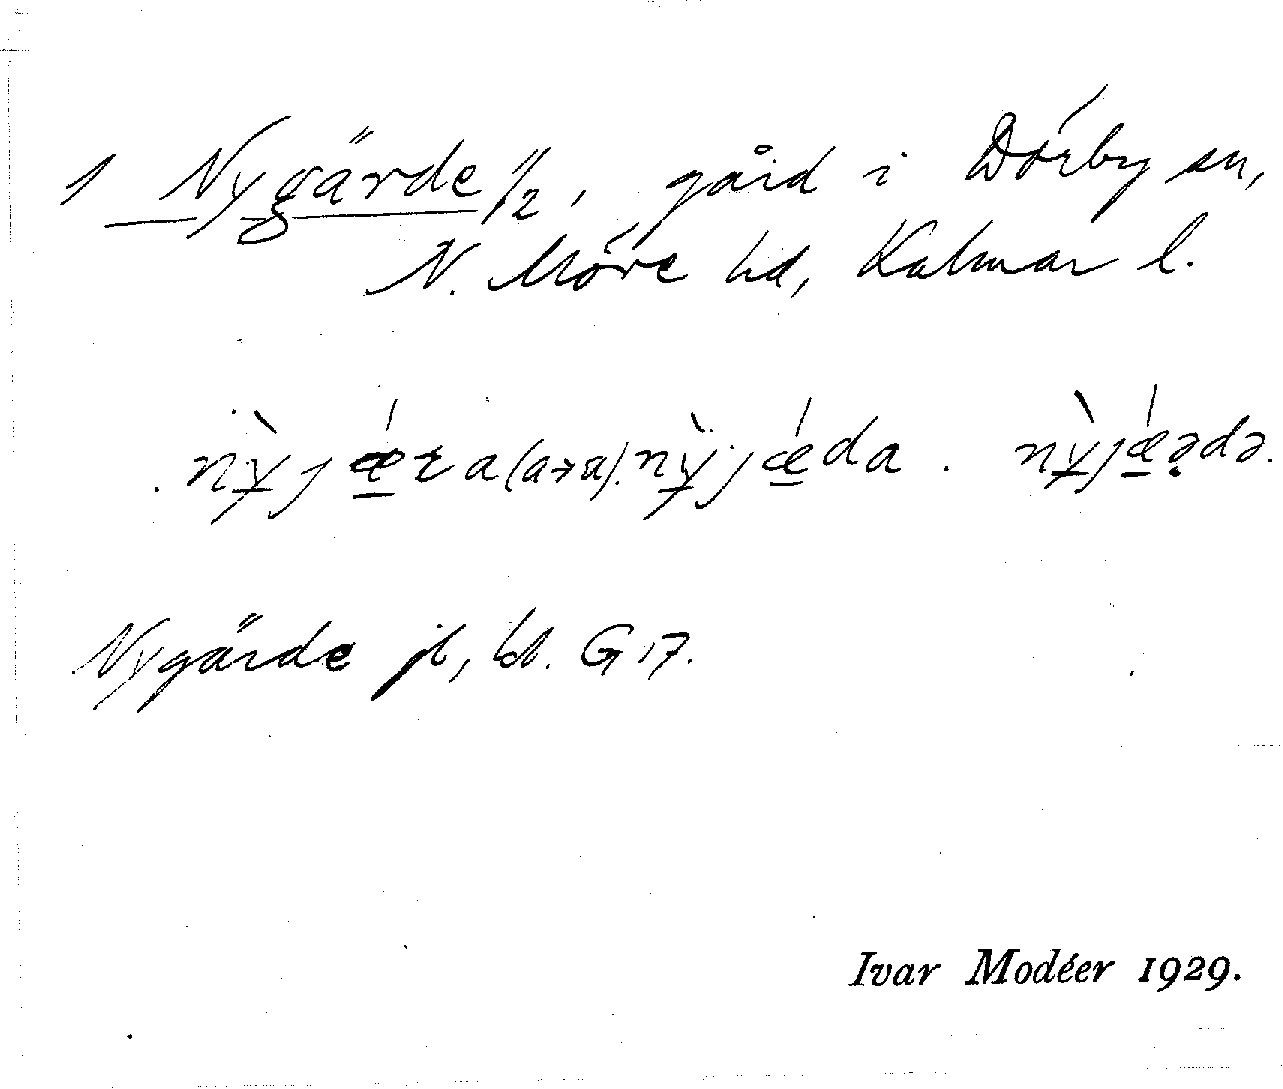 1 Nygärde 1/2, gård i Dörby sn,
N. Möre hd, Kalmar l.
nỳjǽra (a→a). nỳjǽda. nỳjǽədə.
Nygärde jb, bl. G 17.
Ivar Modéer 1929.